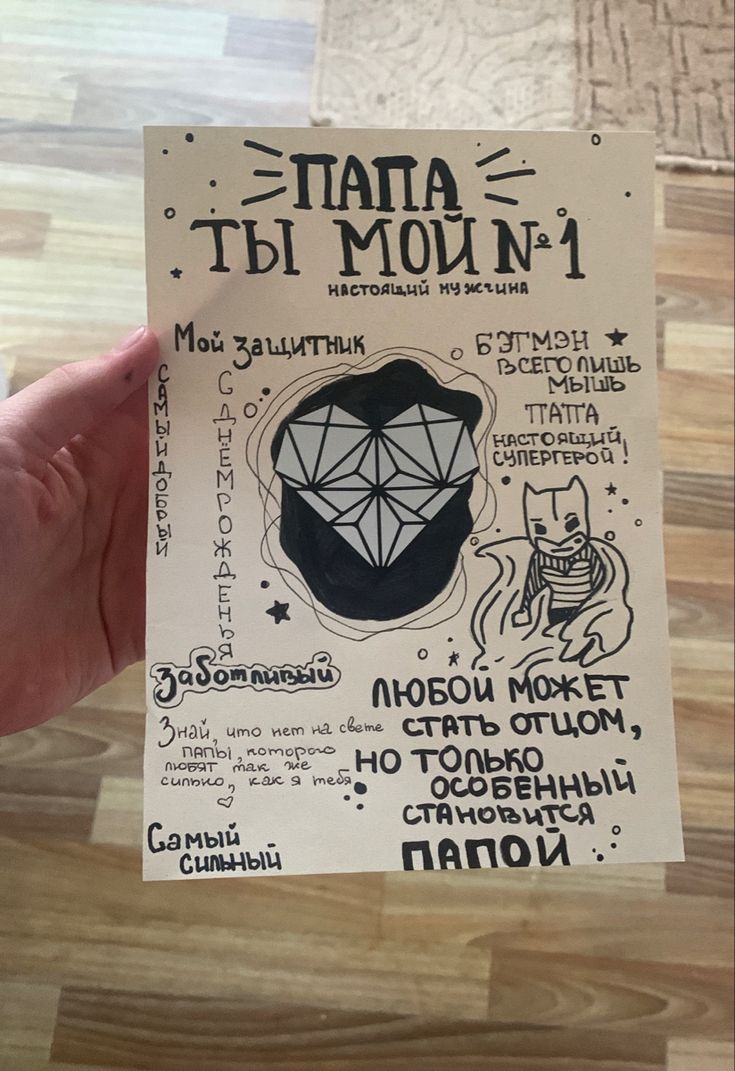 ПАПА
ТЫ МОЙ №1
НАСТОЯЩИЙ МУЖЧИНА
Мой защитник
САМЫЙ ДОБРЫЙ
С ДНЁМ РОЖДЕНЬЯ
БЭТМЭН
ВСЕГО ЛИШЬ
МЫШЬ
ПАПА
НАСТОЯЩИЙ
СУПЕРГЕРОЙ!
Заботливый
Знай, что нет на свете
ПАПЫ, которого
ЛЮБЯТ так же
сильно, как я тебя
ЛЮБОЙ МОЖЕТ
СТАТЬ ОТЦОМ,
НО ТОЛЬКО
ОСОБЕННЫЙ
СТАНОВИТСЯ
ПАПОЙ
Самый
сильный